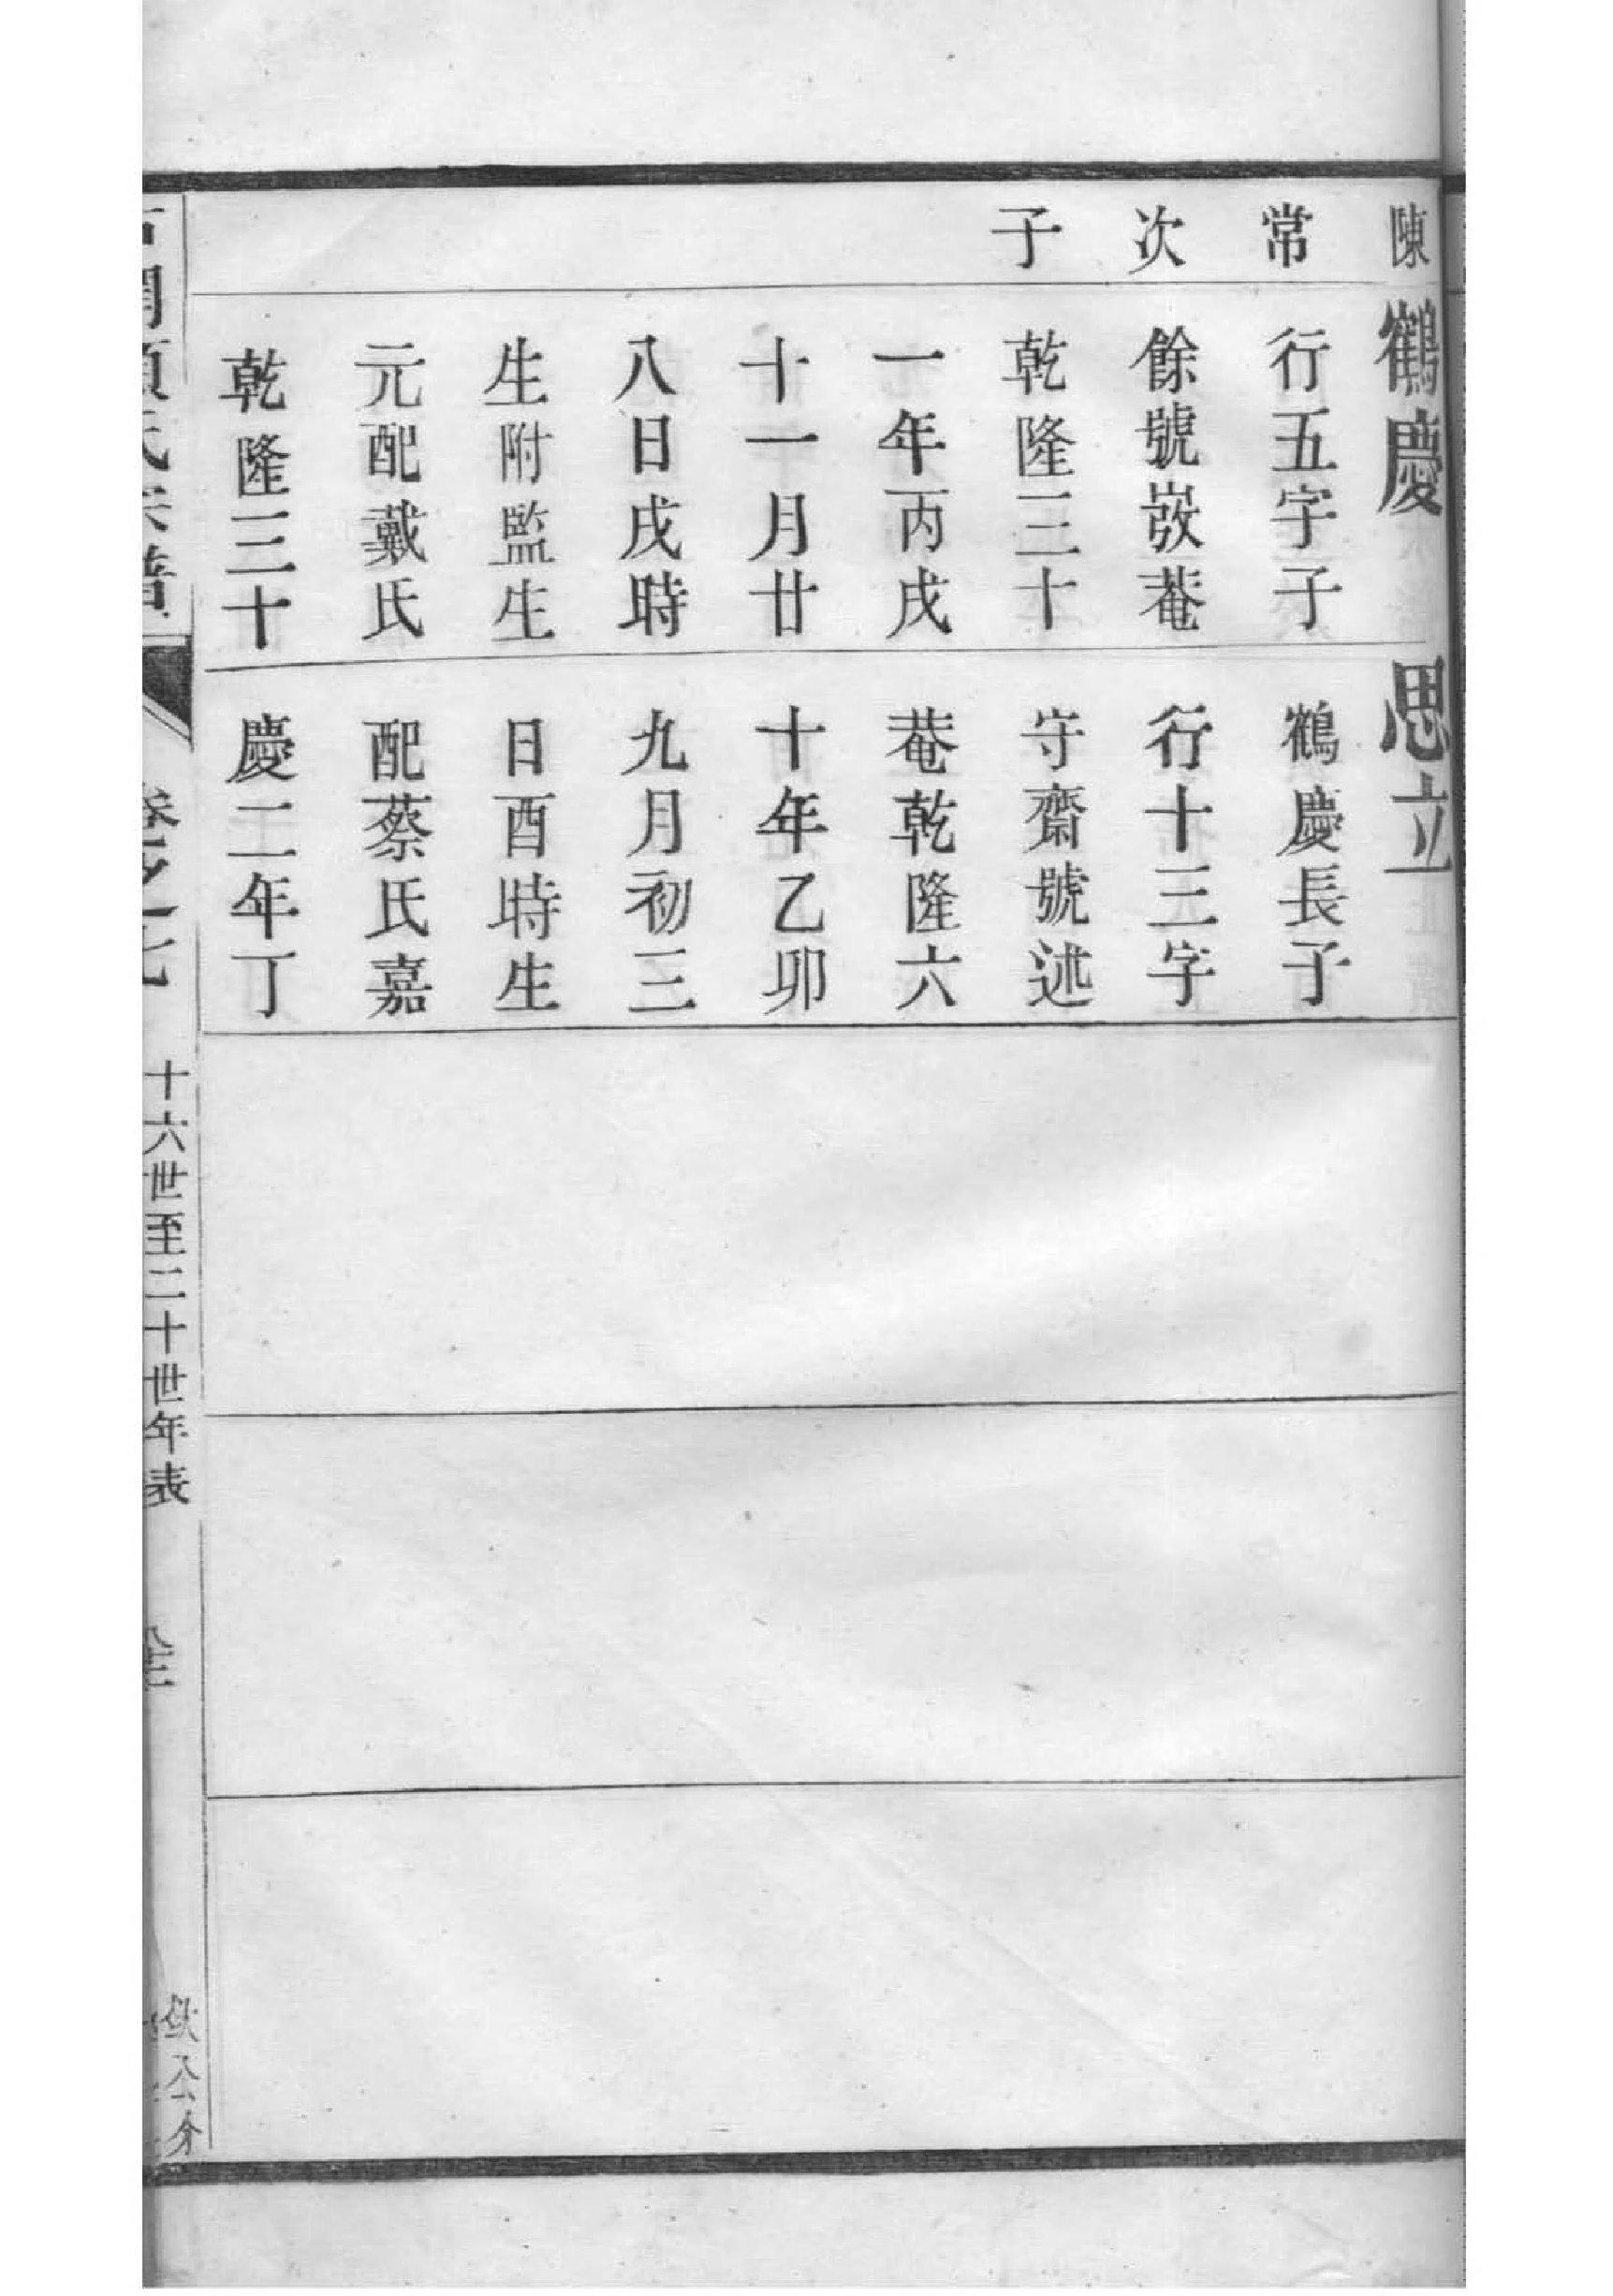 陳
常
次
子
鶴慶
行五字子
餘號敳菴
乾隆三十
一年丙戌
十一月廿
八日戌時
生附監生
元配戴氏
乾隆三十
思立
鶴慶長子
行十三字
守齋號述
菴乾隆六
十年乙卯
九月初三
日酉時生
配蔡氏嘉
慶二年丁
卷之十七
十六世至二十世年表